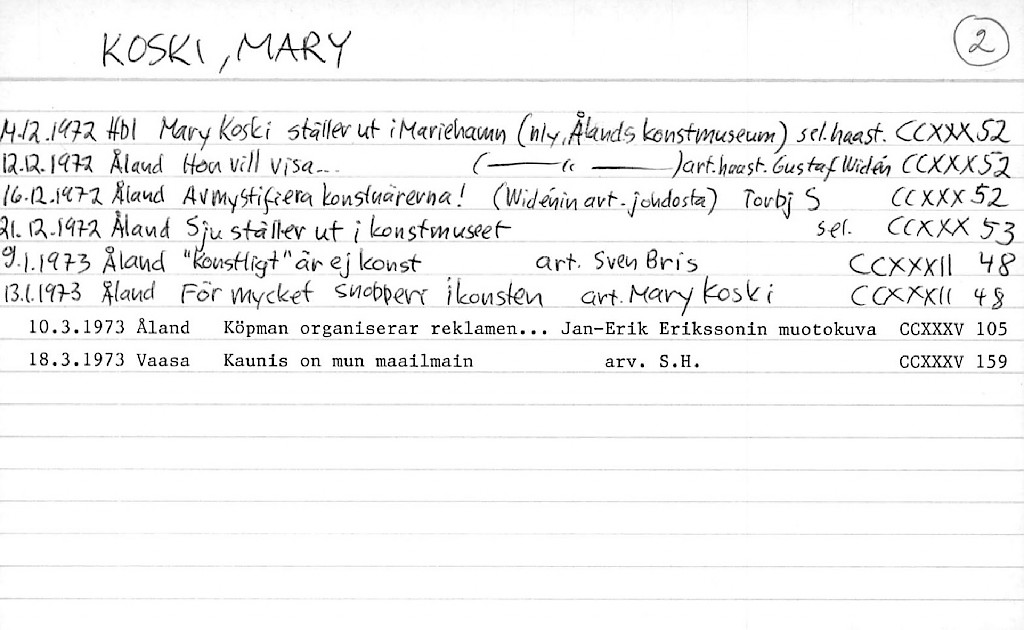 KOSKI, MARY
2
14.12.1972 Hbl Mary Koski ställer ut i Mariehamn (nly, Ålands konstmuseum) sel.haast. CCXXX 52
12.12.1972 Åland Hon vill visa... (——— " ———) art.haast. Gustaf Widén CCXXX 52
16.12.1972 Åland Avmystifiera konstnärerna! (Widénin art. johdosta) Torbj S CCXXX 52
21.12.1972 Åland Sju ställer ut i konstmuseet sel. CCXXX 53
9.1.1973 Åland "Konstligt" är ej konst art. Sven Bris CCXXXII 48
13.1.1973 Åland För mycket snobberi i konsten art. Mary Koski CCXXXII 48
10.3.1973 Åland Köpman organiserar reklamen... Jan-Erik Erikssonin muotokuva CCXXXV 105
18.3.1973 Vaasa Kaunis on mun maailmain arv. S.H. CCXXXV 159